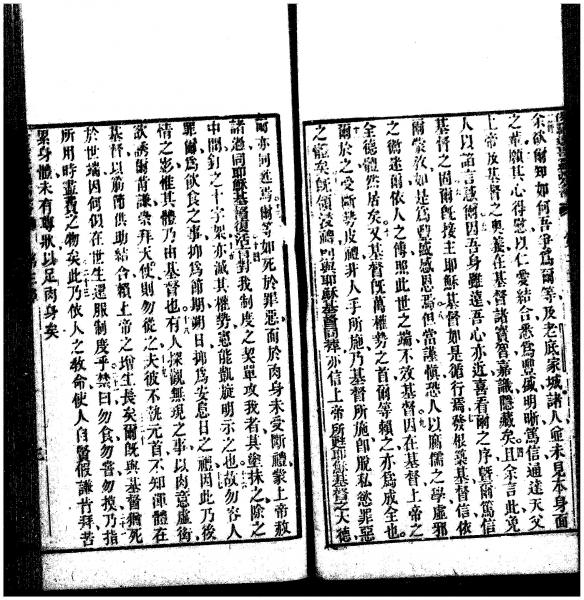 余欲爾知如何吾爭爲爾等及老底家城諸人並未見本身面
之輩願其心得慰以仁愛結合悉爲豐盛明晰篤信通達天父
上帝及基督之奧義在基督諸寶智嘉識隱藏矣且余言此免
人以諂言誘爾因吾身雖遠吾心亦近喜看爾之序曁爾篤信
基督之固爾旣接主耶穌基督如是循行焉發根築基督信依
爾蒙敎如是爲豐盛感恩焉但當謹愼恐人以腐儒之學虛邪
之術迷爾依人之傳耶此世之端不效基督因在基督上帝之
全德體然居矣又基督旣萬權勢之首爾等賴之亦爲成全也
爾於之受斷皮禮非人手所施乃基督所施卽脫私慾罪惡
之體矣旣領浸禮則與耶穌基督同葬亦信上帝所甦耶穌基督之大德
爾亦同甦焉爾等如死於罪惡而於肉身未受斷禮蒙上帝赦
諸愆同耶穌基督復活對我制度之契單攻我者其塗抹之除之
中間釘之十字架亦滅其權勢惡能凱旋明示之也故勿容人
罪爾爲飲食之事抑爲節期朔日抑爲安息日之禮因此乃後
情之影惟其體乃由基督也有人探觀無現之事以肉意虛衒
欲誘爾肯謙崇拜天使則勿從之夫彼不元首不知渾體在
基督以筋節供助結合賴上帝之增生長矣爾旣與基督猶死
於世端因何似在世生還服制度乎禁曰勿食勿嘗勿摸乃指
所用時盡費之物矣此乃依人之敎命使人自賢假謙肯拜苦
累身體未有尊狀以足肉身矣